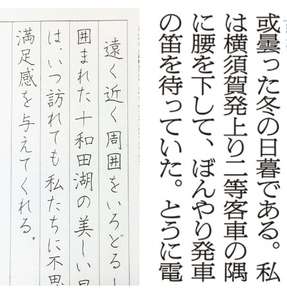 或曇った冬の日暮である。私
は横須賀発上り二等客車の隅
に腰を下して、ぼんやり発車
の笛を待っていた。とうに電
遠く近く周囲をいろどる
囲まれた十和田湖の美しい
は、いつ訪れても私たちに不思
満足感を与えてくれる。